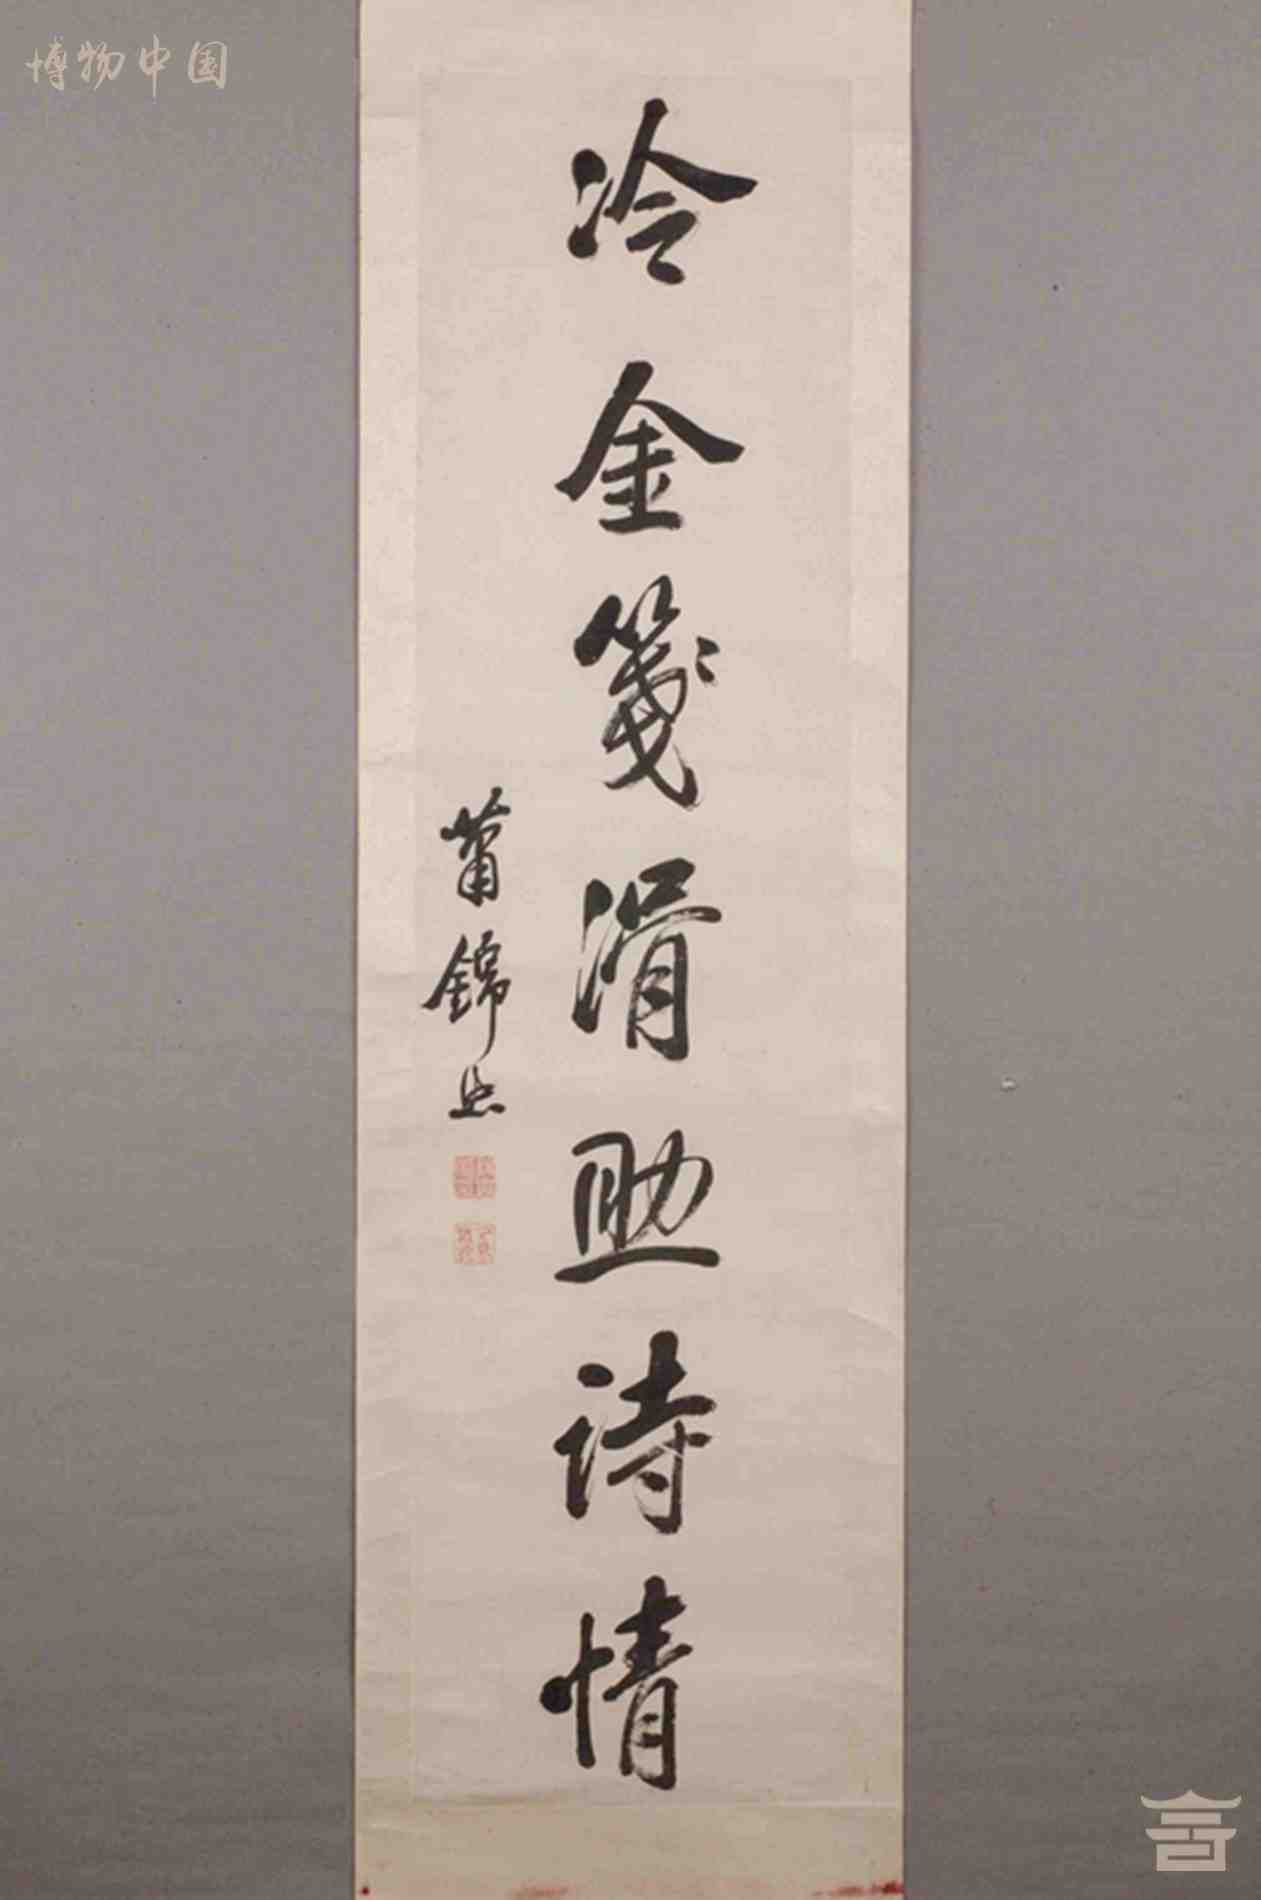 博物中国
冷金箋滑助詩情
蕭錦忠